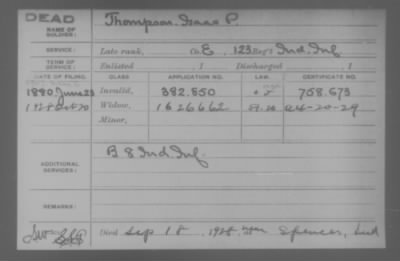 DEAD
NAME OF SOLDIER: Thompson, Isaac P.
SERVICE: Late rank, Co. E, 123 Reg't Ind. Inf.
TERM OF SERVICE: Enlisted , 1 Discharged , 1
DATE OF FILING. CLASS APPLICATION NO. LAW. CERTIFICATE NO.
1880 June 23 Invalid, 382.850 758.673
1928 Oct 20 Widow, 1626662 A-4-20-29
Minor,
ADDITIONAL SERVICES: B 8 Ind. Inf.
REMARKS:
Died Sep 18, 1928, near Spencer, Ind